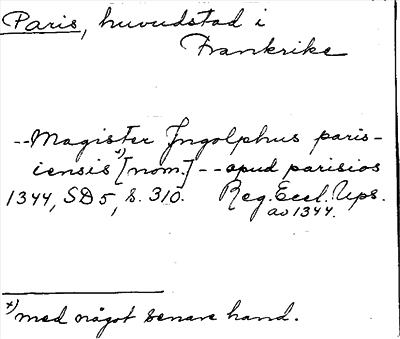 Paris, huvudstad i
Frankrike
--Magister Jngolphus paris-
iensis +) [nom.] -- apud parisios
1344, SD 5, s. 310. Reg. Eccl. Ups.
av 1344.
+) med något senare hand.